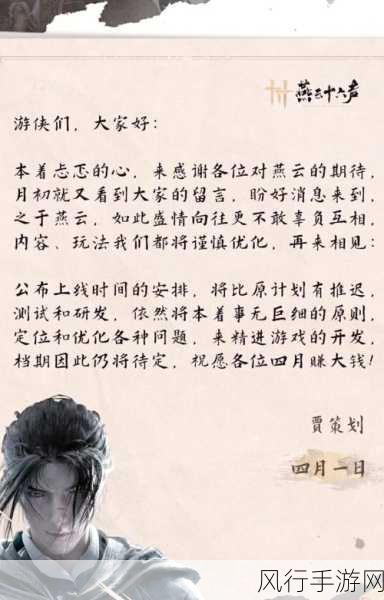 燕云十六声
游侠们，大家好：
本着忐忑的心，来感谢各位对燕云的期待，
月初就又看到大家的留言，盼好消息来到，
之于燕云，如此盛情向往更不敢辜负互相，
内容、玩法我们都将谨慎优化，再来相见：
公布上线时间的安排，将比原计划有推迟，
测试和研发，依然将本着事无巨细的原则，
定位和优化各种问题，来精进游戏的开发，
档期因此仍将待定，祝愿各位四月赚大钱！
贾策划
四月一日
风行手游网